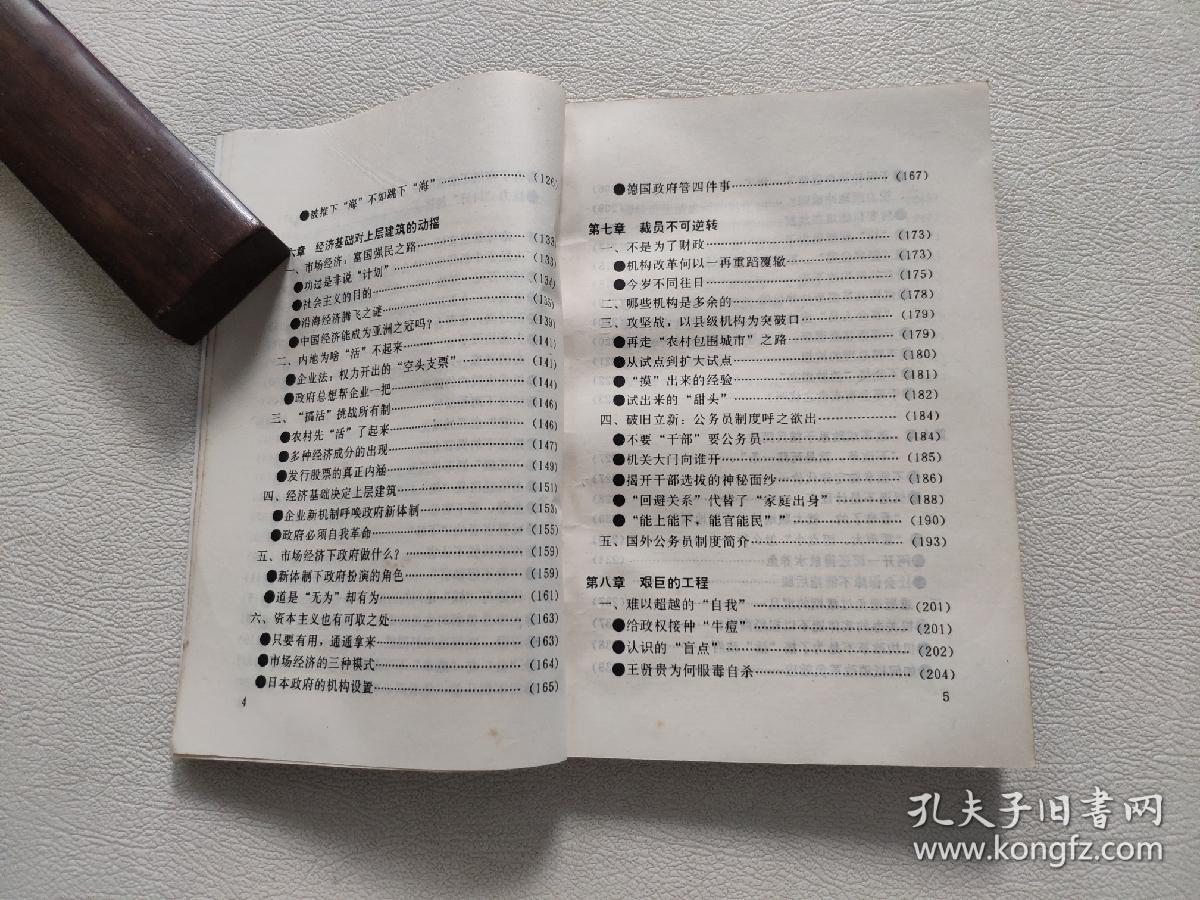 ●被推下“海”不如跳下“海”……(126)
六章 经济基础对上层建筑的动摇
一、市场经济：富国强民之路……(133)
●功过是非说“计划”……(133)
●社会主义的目的……(134)
●沿海经济腾飞之谜……(135)
●中国经济能成为亚洲之冠吗？……(139)
二、内地为啥“活”不起来……(141)
●企业法：权力开出的“空头支票”……(141)
●政府总想帮企业一把……(144)
三、“搞活”挑战所有制……(146)
●农村先“活”了起来……(146)
●多种经济成分的出现……(147)
●发行股票的真正内涵……(149)
四、经济基础决定上层建筑……(151)
●企业新机制呼唤政府新体制……(153)
●政府必须自我革命……(155)
五、市场经济下政府做什么？……(159)
●新体制下政府扮演的角色……(159)
●道是“无为”却有为……(161)
六、资本主义也有可取之处……(163)
●只要有用，通通拿来……(163)
●市场经济的三种模式……(164)
●日本政府的机构设置……(165)
4
●德国政府管四件事……(167)
第七章 裁员不可逆转
一、不是为了财政……(173)
●机构改革何以一再重蹈覆辙……(173)
●今岁不同往日……(175)
二、哪些机构是多余的……(178)
三、攻坚战，以县级机构为突破口……(179)
●再走“农村包围城市”之路……(179)
●从试点到扩大试点……(180)
●“摸”出来的经验……(181)
●试出来的“甜头”……(182)
四、破旧立新：公务员制度呼之欲出……(184)
●不要“干部”要公务员……(184)
●机关大门向谁开……(185)
●揭开干部选拔的神秘面纱……(186)
●“回避关系”代替了“家庭出身”……(188)
●“能上能下，能官能民””……(190)
五、国外公务员制度简介……(193)
第八章 艰巨的工程
一、难以超越的“自我”……(201)
●给政权接种“牛痘”……(201)
●认识的“盲点”……(202)
●王贤贵为何服毒自杀……(204)
5
孔夫子旧书网
www.kongfz.com